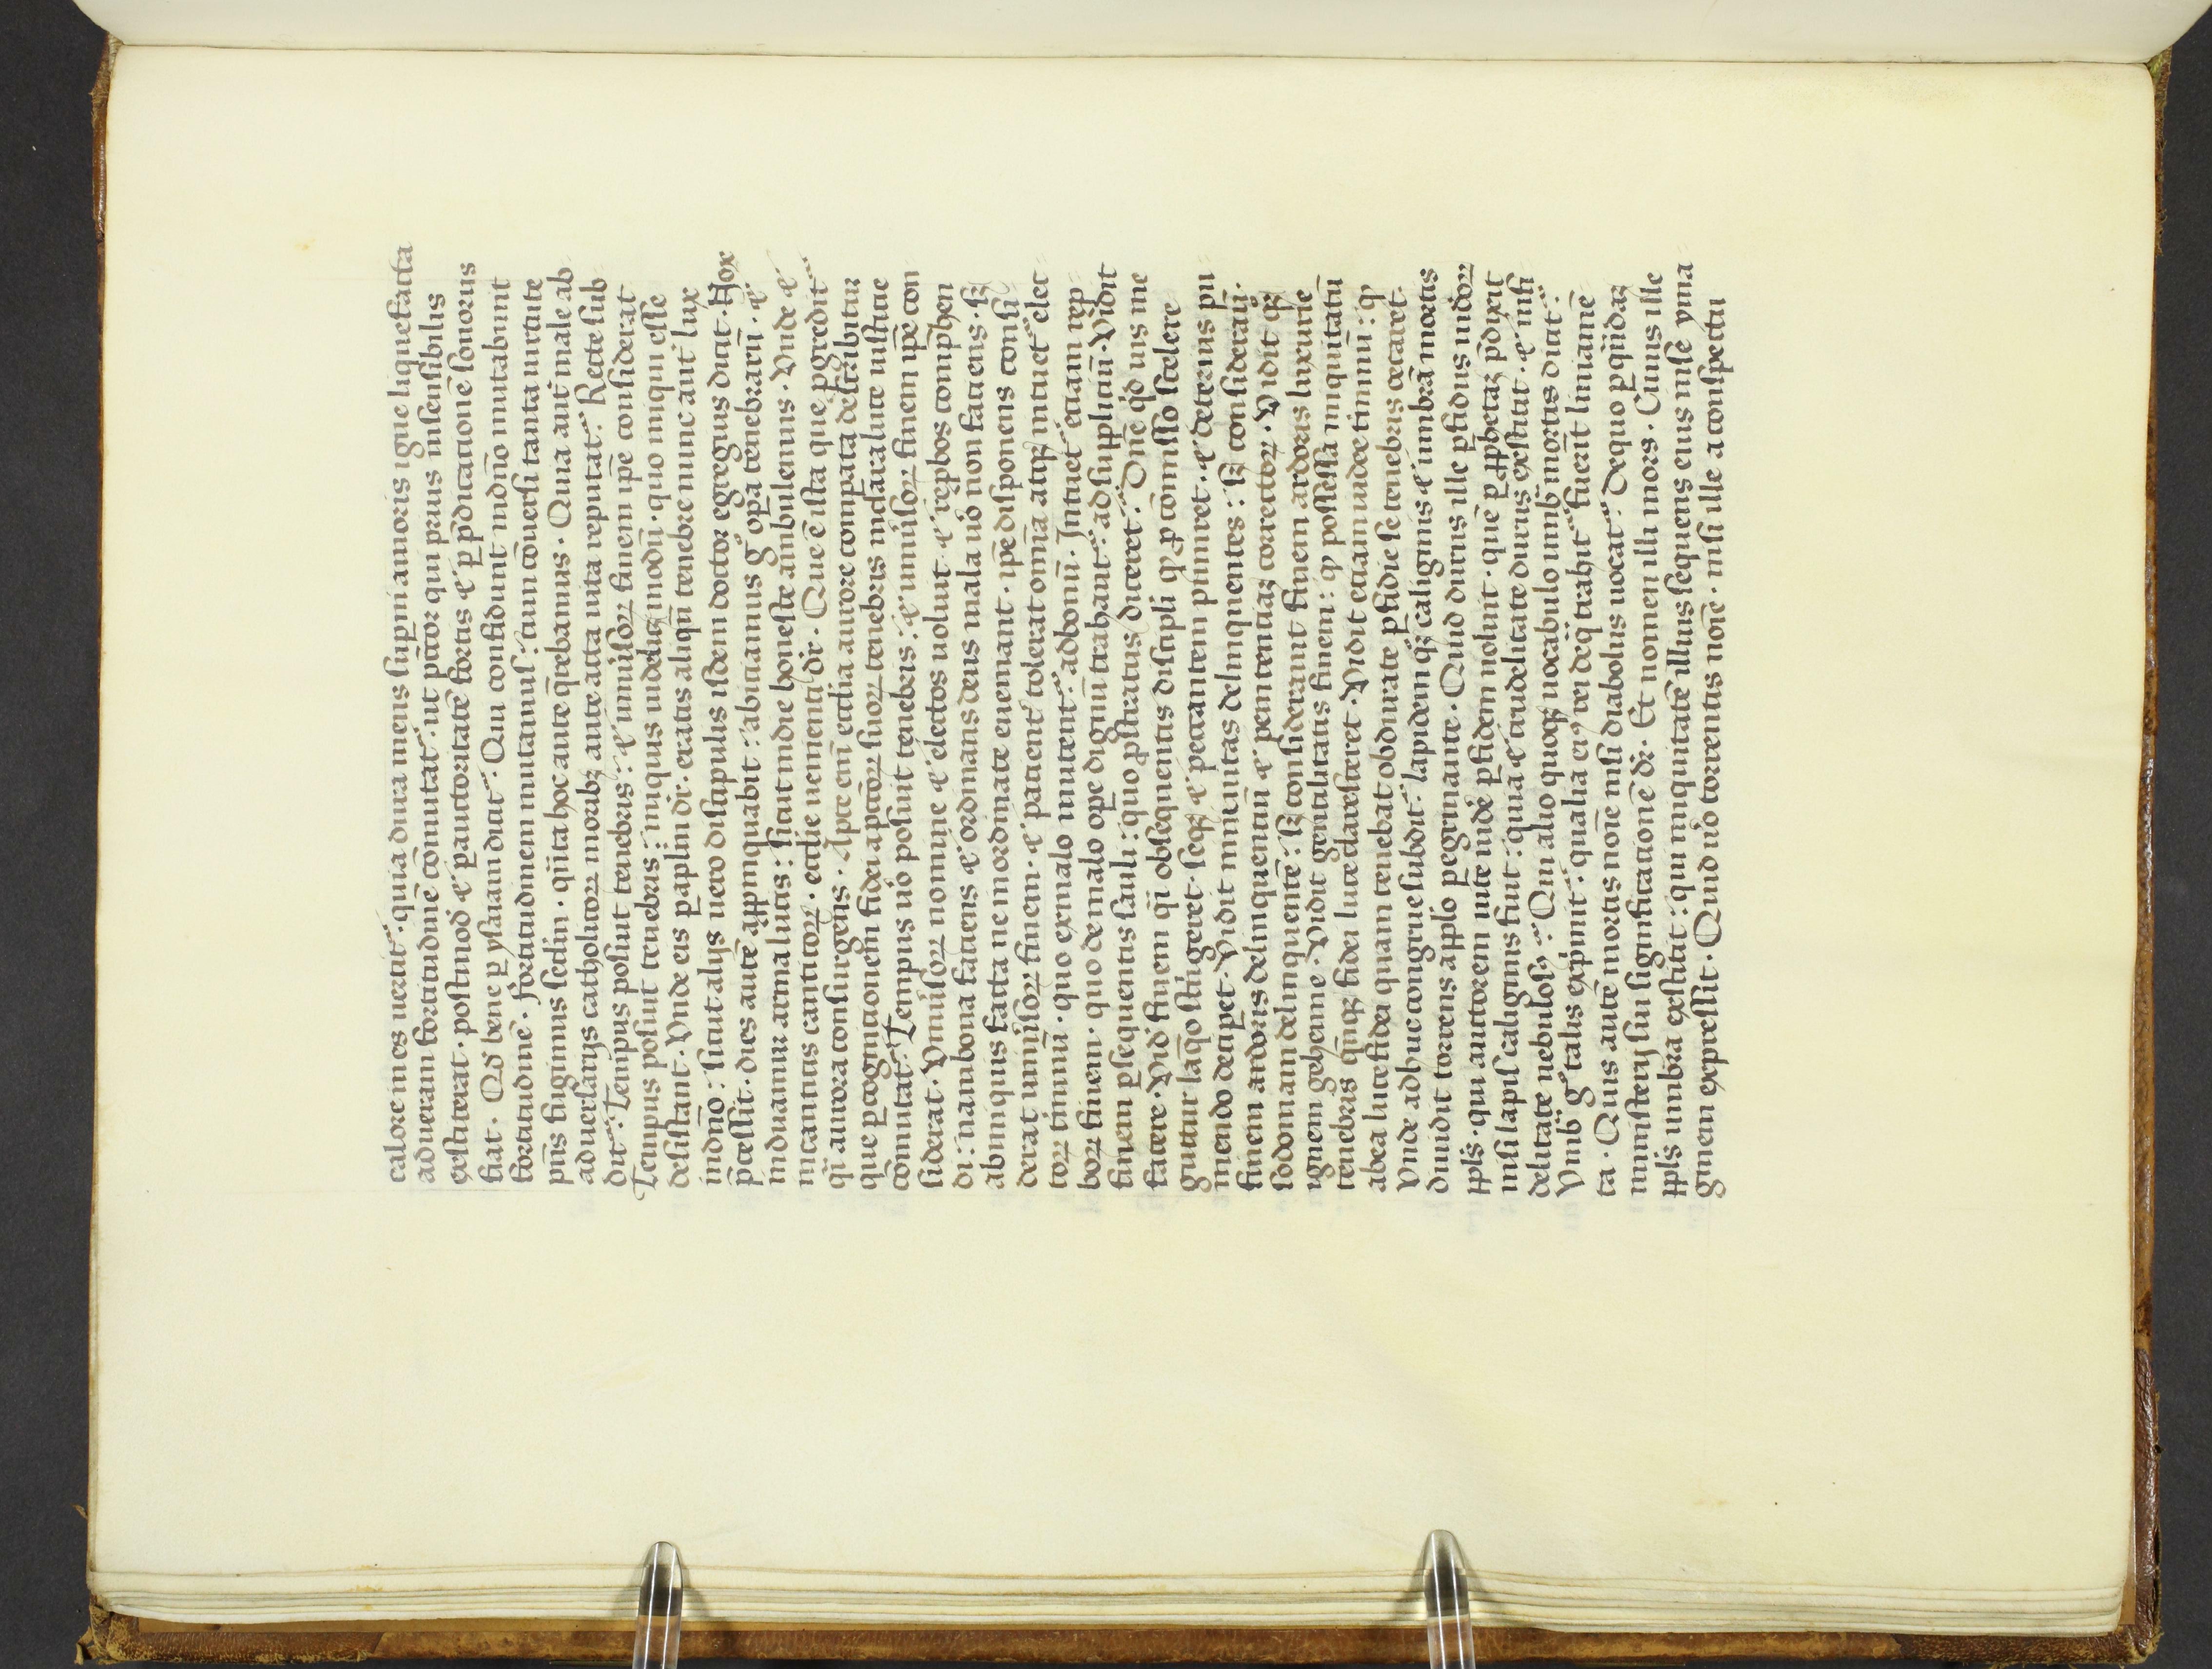 calore in es uertit: quia dura mens supni amoris igne liquefacta
adueram fortitudinē cōmutat: ut pctōr qui prius insensibilis
exstiterat· postmod̄ ⁊ p̱ auctoritatē fortis ⁊ p̱ p̄dicationē sonorus
fiat· Qd̄ bene p̱ ysaiam dicit· Qui confidunt indn̄o mutabunt
fortitudinē· fortitudinem mutamus: cum cōuersi tanta uirtute
pn̄s fugimus sc̄dm· qn̄ta hoc ante q̄rebamus· Quia aut̄ male ab
aduersarijs catholicoꝝ moribꝫ ante acta uita reputat̄: Recte sub
dit: Tempus posuit tenebris: ⁊ uniūsoꝝ finem ip̄e considerat
Tempus posuit tenebris: iniquus uidelicꝫ modū· quo iniqui esse
desistant· Vnde eis p̱ap̄lm dr̄· eratis aliqn̄ tenebre nunc aut̄ lux
indn̄o: sicut alijs uero discipulis isdem doctor egregius dicit· Nox
p̄cessit· dies autē app̱inquabit: abiciamus gͦ op̱a tenebrarū· ⁊
induamur arma lucis: sicut indie honeste ambulemus· Vnde ⁊
incanticis canticoꝝ· eccl̄ie uenienti dr̄· Que ē ista que p̱gredit̄
qͣi aurora consurgens· Apte eni eccl̄ia aurore comp̱ata describitur
que p̱ cognitionem fidei a pctōꝝ suoꝝ tenebris inclara luce iusticie
cōmutat̄: Tempus uͦo posuit tenebris: ⁊ uniūsoꝝ finem ip̄e con
siderat· Vniūsoꝝ nomine ⁊ electos uoluit ⁊ rep̱bos comp̱hen
di: nam bona faciens ⁊ ordinans deus mala uͦo non faciens· sꝫ
abiniquis facta ne inordinate eueniant· ip̄e disponens consi
derat uniūsoꝝ finem· ⁊ pacient̄ tolerat omīa atqꝫ intuet̄ elec
toꝝ t̄minū· quo exmalo mutent̄: adbonū· Intuet̄ etiam rep̱
boꝝ finem· quo de malo op̱e dignū trahant̄: ad supp̱liciū· Vidit
finem p̱sequentis sauli: quo ꝓstratus diceret: Dn̄e qͥd uis me
facere· Vid̄ finem qͣi obsequentis discipli qꝫ ꝓ cōmisso scelere
gutt̄ur laq̄o st̄ngeret· seqꝫ ⁊ peccantem puniret· ⁊ deterius pu
niendo decip̱et· Vidit niniuitas delinquentes: sꝫ considerau̅·
finem ardoris delinquentiū ⁊ penitentiaꝫ correctoꝝ· Vidit qͦꝫ
sodomam delinquentē: sꝫ considerauit finem ardoris luxurie
ignem gehenne· Vidit gentilitatis finem: qꝫ possessa iniquitatū
tenebris qn̄qꝫ fidei luce claresceret· Vidit etiam iudee t̄minū: qꝫ
abea luce fidei quam tenebat obdurate p̱fidie se tenebris cecaret·
Vnde adhuc congrue subdit: lapidem qͦꝫ caliginis ⁊ umbrā mortis
diuidit torrens a pp̱lo p̱egrinante· Quid durius ille p̱fidius iudoꝝ
pp̱ls̄· qui auctorem uite uide p̱ fidem noluit· quē p̱ pp̱hetaꝫ p̄dixit
nisi lapis caliginis fuit: quia ⁊ crudelitate durus exstitit· ⁊ infi
delitate nebulosꝰ: Qui alio quoqꝫ uocabulo umb̄ mortis dicit̄:
Vmb̄ gͦ talis exp̱init̄: qualia eiꝰ rei deqͣ trahit̄ fuerit liniamē
ta· Quis autē mortis noīe nisi diabolus uocat̄: De quo p̱ qͥidaꝫ
ministerij sui significationē dr̄· Et nomen illi mors· Cuius ille
pp̱ls̄ umbra exstitit: qui iniquitatē illius sequens eius inse yma
ginem expressit· Quid uͦo torrentis noīe· nisi ille aconspectu